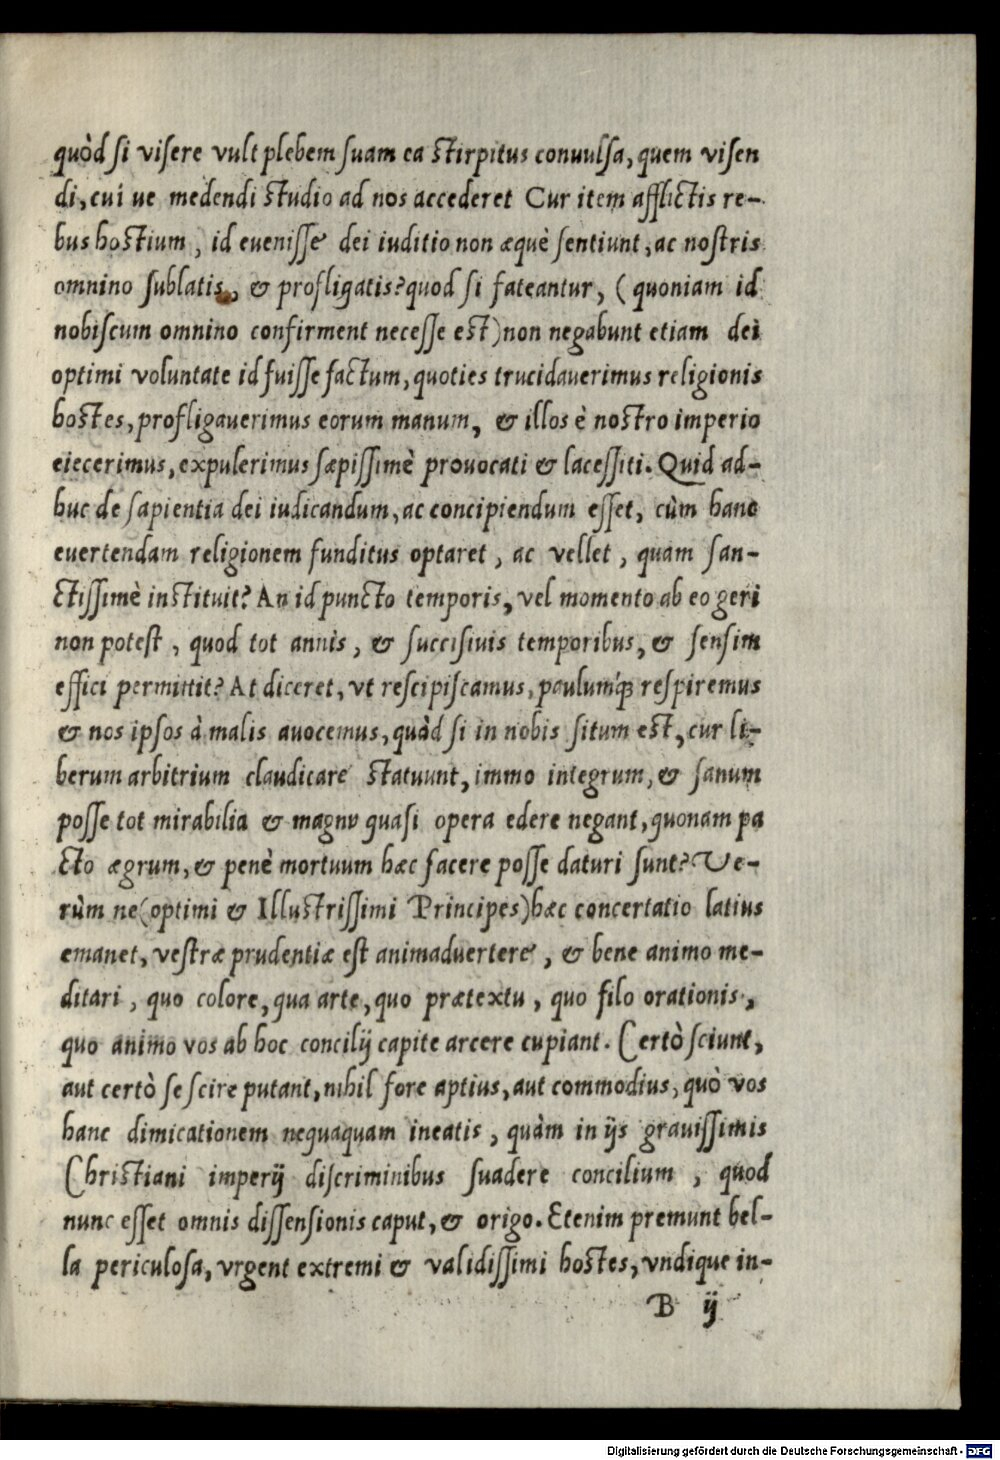 quòd ſi viſere vult plebem ſuam ea ſtirpitus conuulſa, quem viſen
di, cui ue medendi ſtudio ad nos accederet Cur item afflictis re-
bus hoſtium, id eueniſſe dei iuditio non æquè ſentiunt, ac noſtris
omnino ſublatis, & profligatis? quod ſi fateantur, (quoniam id
nobiſcum omnino confirment neceſſe eſt) non negabunt etiam dei
optimi voluntate id fuiſſe factum, quoties trucidauerimus religionis
hoſtes, profligauerimus eorum manum, & illos è noſtro imperio
eiecerimus, expulerimus ſæpiſſimè prouocati & laceſſiti. Quid ad-
huc de ſapientia dei iudicandum, ac concipiendum eſſet, cùm hanc
euertendam religionem funditus optaret, ac vellet, quam ſan-
ctiſſimè inſtituit? An id puncto temporis, vel momento ab eo geri
non poteſt, quod tot annis, & ſucciſiuis temporibus, & ſenſim
effici permittit? At diceret, vt reſcipiſcamus, paulumq́; reſpiremus
& nos ipſos à malis auocemus, quòd ſi in nobis ſitum eſt, cur li-
berum arbitrium claudicare ſtatuunt, immo integrum, & ſanum
poſſe tot mirabilia & magna quaſi opera edere negant, quonam pa
cto ægrum, & penè mortuum hæc facere poſſe daturi ſunt? Ve-
rùm ne (optimi & Illuſtriſſimi Principes) hæc concertatio latius
emanet, veſtræ prudentiæ eſt animaduertere, & bene animo me-
ditari, quo colore, qua arte, quo prætextu, quo filo orationis,
quo animo vos ab hoc concilij capite arcere cupiant. Certò ſciunt,
aut certò ſe ſcire putant, nihil fore aptius, aut commodius, quò vos
hanc dimicationem nequaquam ineatis, quàm in ijs grauiſſimis
Chriſtiani imperij diſcriminibus ſuadere concilium, quod
nunc eſſet omnis diſſenſionis caput, & origo. Etenim premunt bel-
la periculoſa, vrgent extremi & validiſſimi hoſtes, vndique in-
B ij
Digitalisierung gefördert durch die Deutsche Forschungsgemeinschaft - DFG